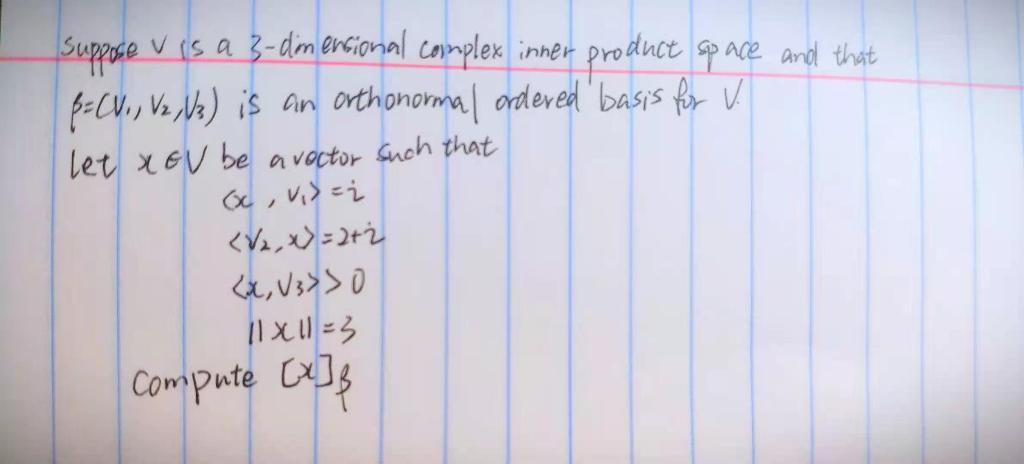 Suppose V is a 3-dimensional complex inner product space and that
β=(V₁, V₂, V₃) is an orthonormal ordered basis for V.
Let x∈V be a vector such that
⟨x, V₁⟩=i
⟨V₂, x⟩=2+i
⟨x, V₃⟩>0
||x||=3
Compute [x]β